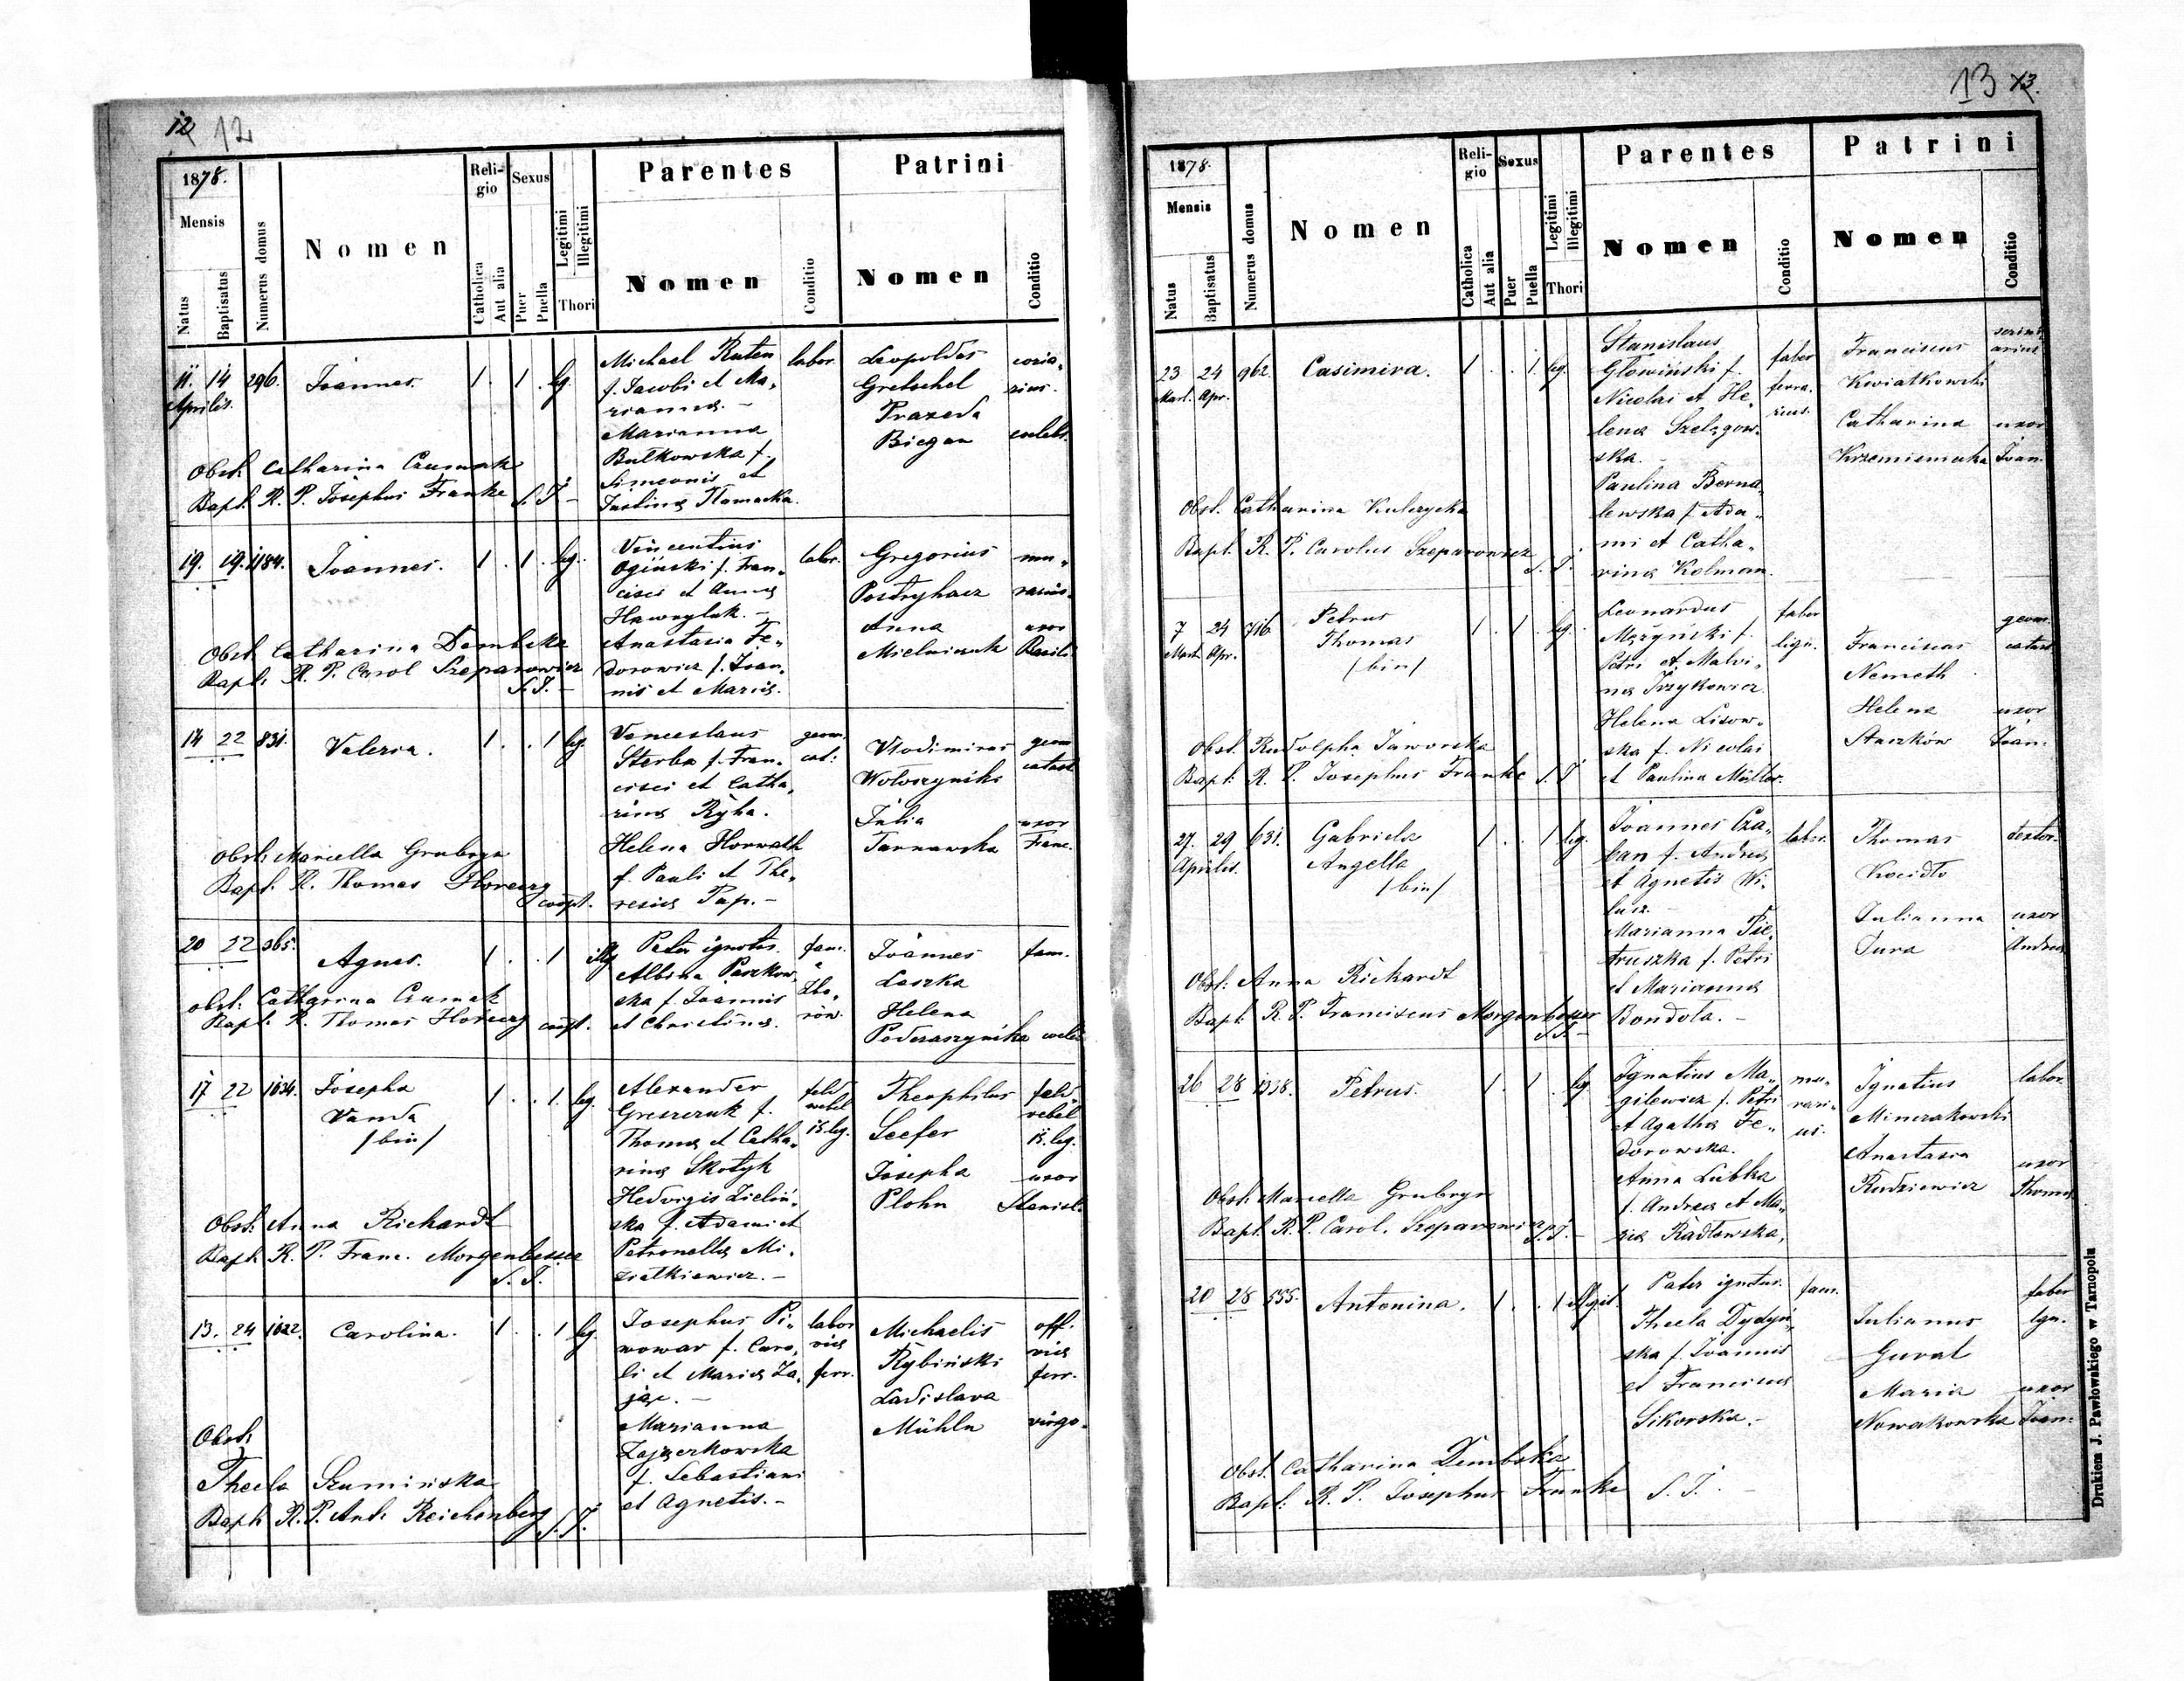 12 12
1878.
Mensis
Natus
Baptisatus
Numerus domus
Nomen
Religio
Catholica
Aut alia
Sexus
Puer
Puella
Legitimi
Illegitimi
Thori
Parentes
Nomen
Conditio
Patrini
Nomen
Conditio
11. 14 296. Joannes. 1. 1. leg.
Aprilis.
Michael Ruten
f. Jacobi et Ma„
rianna. –
Marianna
Butkowska f.
Simeonis et
Justina Tlamacka.
labor.
Leopoldus
Gretschel
Praxeda
Biegan
coria„
rius.
caelebs.
Obst. Catharina Czumak
Bapt. R. P. Josephus Franke S. J. –
19. 19. 1184. Joannes. 1. 1. leg.
Vincentius
Ogiński f. Fran„
cisci et Anna
Hawryluk. –
Anastasia Fe„
dorowicz f. Joan„
nis et Maria.
labor.
Gregorius
Postryhacz
Anna
Mielniczuk
mu„
rarius.
uxor
Basili
Obst. Catharina Dembska
Bapt. R. P. Carol Szeparowicz
S. J. –
14 22 831. Valeria. 1. . 1 leg.
Venceslaus
Sterba f. Fran„
cisci et Catha„
rina Ryha.
Helena Horwath
f. Pauli et The„
resia Pap. –
geom.
cat:
Vladimirus
Wołoszyński
Julia
Tarnawska
geom
catast
uxor
Franc.
Obst: Marcella Grubryn
Bapt. R. Thomas
coopt.
20 22 365. Agnes. 1. . 1 illeg
Pater ignotus.
Albina Paszkow„
ska f. Joannis
et Christina.
fam.
Zbo„
rów.
Joannes
Laszka
Helena
Podszaszyńska
fam.
caelebs
obst: Catharina Czumak
Bapt. R. Thomas
coopt.
17 22 1034. Josepha 1. . 1. leg.
Vanda
/bin/
Alexander
Greszczuk f.
Thoma et Catha„
rina Skotyk
Hedvigis Zieliń„
ska f. Adami et
Petronella Mi„
ziatkiewicz. –
feld
webel
15. leg.
Theophilus
Seefer
Josepha
Plohn
feld„
vebel
15. leg.
uxor
Stanisl.
Obst: Anna Richardt
Bapt. R. P. Franc. Morgenbesser
S. J.
13. 24 1022. Carolina. 1. . 1 leg.
Josephus Pi„
wowar f. Caro„
li et Maria Za„
jąc. –
Marianna
Zajączkowska
f. Sebastiani
et Agnetis. –
labor
vie
ferr.
Michaelis
Rybiński
Ladislava
Mühln
off.
vie
ferr.
virgo.
Obst:
Thecla Szumińska
Bapt. R. P. Ant. Reichenberg S. J.
13 13.
1878.
Mensis
Natus
Baptisatus
Numerus domus
Nomen
Religio
Catholica
Aut alia
Sexus
Puer
Puella
Legitimi
Illegitimi
Thori
Parentes
Nomen
Conditio
Patrini
Nomen
Conditio
23 24 962. Casimira. 1. . 1. leg.
Mart. Apr.
Stanislaus
Głowiński f.
Nicolai et He„
lena Szelzgow„
ska. –
Paulina Berna„
lewska f. Ada„
mi et Catha„
rina Kolman.
faber
ferra.
rius.
Franciscus
Kwiatkowski
Catharina
Krzemieniecka
scrini
arius
uxor
Joan.
Obst. Catharina Kulczycka
Bapt. R. P. Carolus Szeparowicz
S. J.
7 24 716. Petrus 1. 1. leg.
Mart. Apr. Thomas
/bin/
Leonardus
Mężyński f.
Petri et Malvi„
na Irzykowicz.
Helena Lisow„
ska f. Nicolai
et Paulina Müller.
faber
lign.
Franciscus
Nemeth
Helena
Staczków
geom.
catast
uxor
Joan.
Obst. Rudolpha Jaworska
Bapt: R. P. Josephus Franke S. J
27. 29 631. Gabriela 1. . 1 leg.
Aprilis. Angella
/bin/
Joannes Cza„
ban f. Andrea
et Agnetis Wi„
lusz. –
Marianna Pie„
truszka f. Petri
et Marianna
Bondola. –
labor.
Thomas
Kocidło
Julianna
Jura
textor.
uxor
Andrea
Obst: Anna Richardt
Bapt. R. P. Franciscus Morgenbesser
S. J. –
26 28 1338. Petrus. 1. 1. leg
Ignatius Ma„
gilewicz f. Petri
et Agatha Fe„
dorowska.
Anna Lubka
f. Andrea et Ma„
ria Radłowska.
mu„
rari„
us.
Ignatius
Minczakowski
Anastasia
Rudziewicz
labor.
uxor
Thoma
Obst: Marcella Grubryn
Bapt. R. P. Carol. Szeparowicz S. J. –
20 28 555. Antonina. 1. . 1 illegit.
Pater ignotus.
Thecla Dydyń„
ska f. Joannis
et Francisca
Sikorska. –
fam.
Julianus
Gural
Maria
Nowakowska
faber
lgn.
uxor
Joan.
Obst. Catharina Dembska
Bapt: R. P. Josephus Franke S. J. –
Drukiem J. Pawłowskiego w Tarnopolu